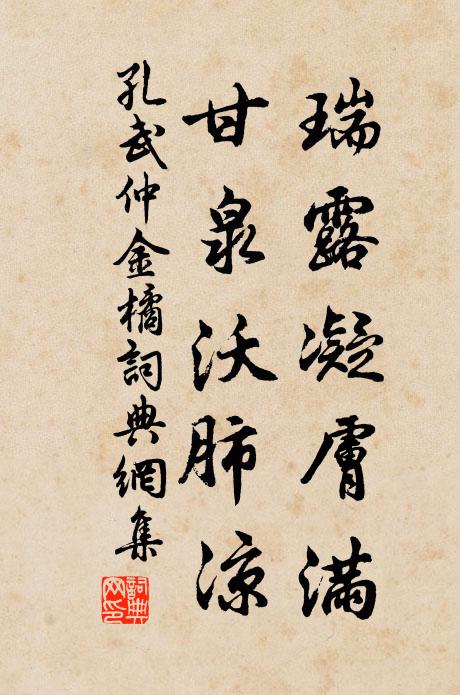 瑞露凝膚滿
甘泉沃肺涼
孔武仲金橘詞典網集
詞典網印